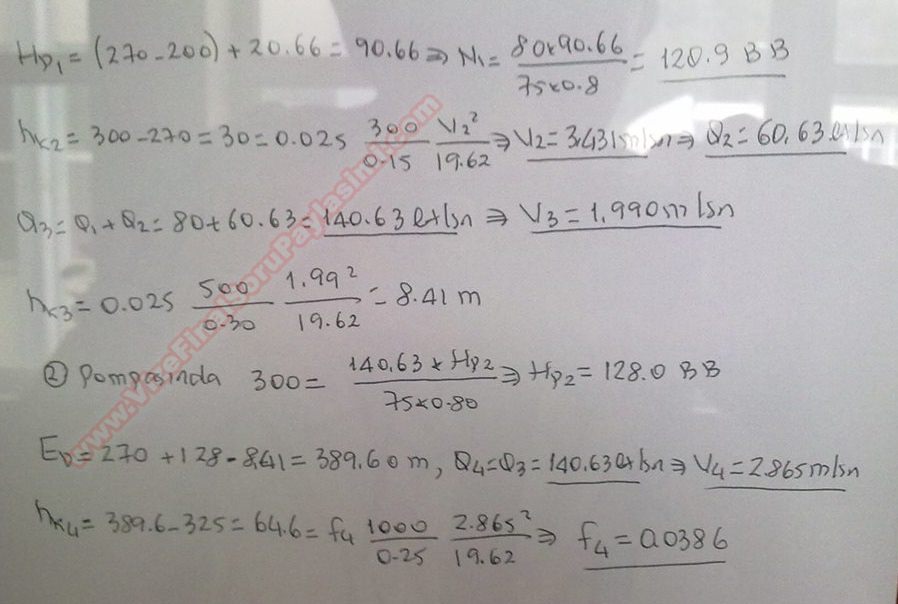 Hp₁ = (270-200) + 20.66 = 90.66 ⇒ N₁ = 80x90.66 / 75x0.8 = 120.9 BB
hk2 = 300-270 = 30 = 0.025 300/0.15 V₂²/19.62 ⇒ V₂ = 3.431 m/sn ⇒ Q₂ = 60.63 lt/sn
Q₃ = Q₁ + Q₂ = 80+60.63 = 140.63 lt/sn ⇒ V₃ = 1.990 m/sn
hk3 = 0.025 500/0.30 1.99²/19.62 = 8.41 m
② Pompasında 300 = 140.63 x Hp₂ / 75x0.80 ⇒ Hp₂ = 128.0 BB
ED = 270 + 128 - 8.41 = 389.60 m, Q₄ = Q₃ = 140.63 lt/sn ⇒ V₄ = 2.865 m/sn
hk4 = 389.6-325 = 64.6 = f₄ 1000/0.25 2.865²/19.62 ⇒ f₄ = 0.0386
www.VizeFinalSoruPaylasimi.com